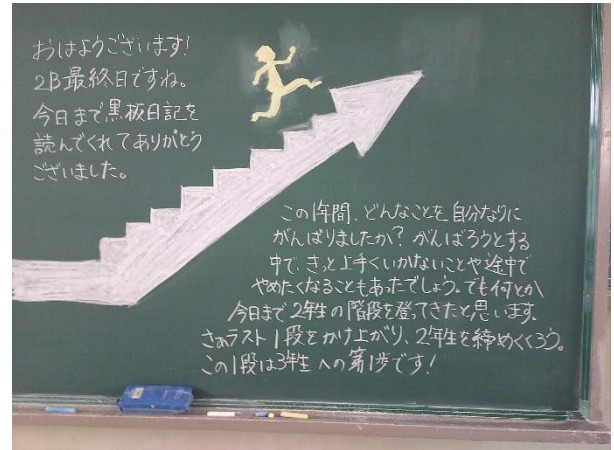 おはようございます!
2B最終日ですね。
今日まで黒板日記を
読んでくれてありがとう
ございました。
この1年間、どんなことを自分なりに
がんばりましたか?がんばろうとする
中で、きっと上手くいかないことや途中で
やめたくなることもあったでしょう。でも何とか
今日まで2年生の階段を登ってきたと思います。
さぁラスト1段をかけ上がり、2年生を締めくくろう。
この1段は3年生への第1歩です!